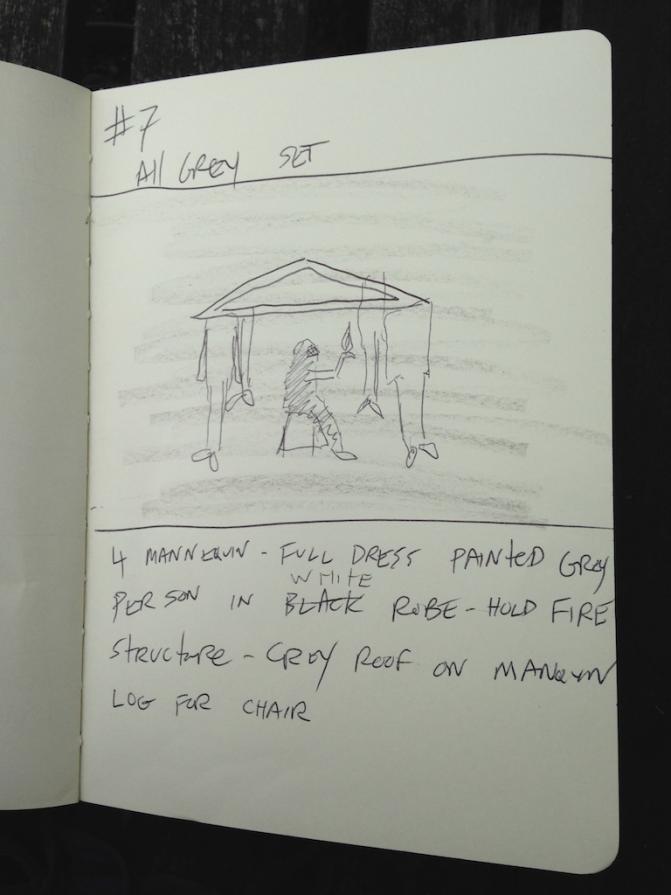 #7
All GREY SET
4 MANNEQUIN - FULL DRESS PAINTED GREY
WHITE
PERSON IN BLACK ROBE - HOLD FIRE
STRUCTURE - GREY ROOF ON MANQUIN
LOG FOR CHAIR